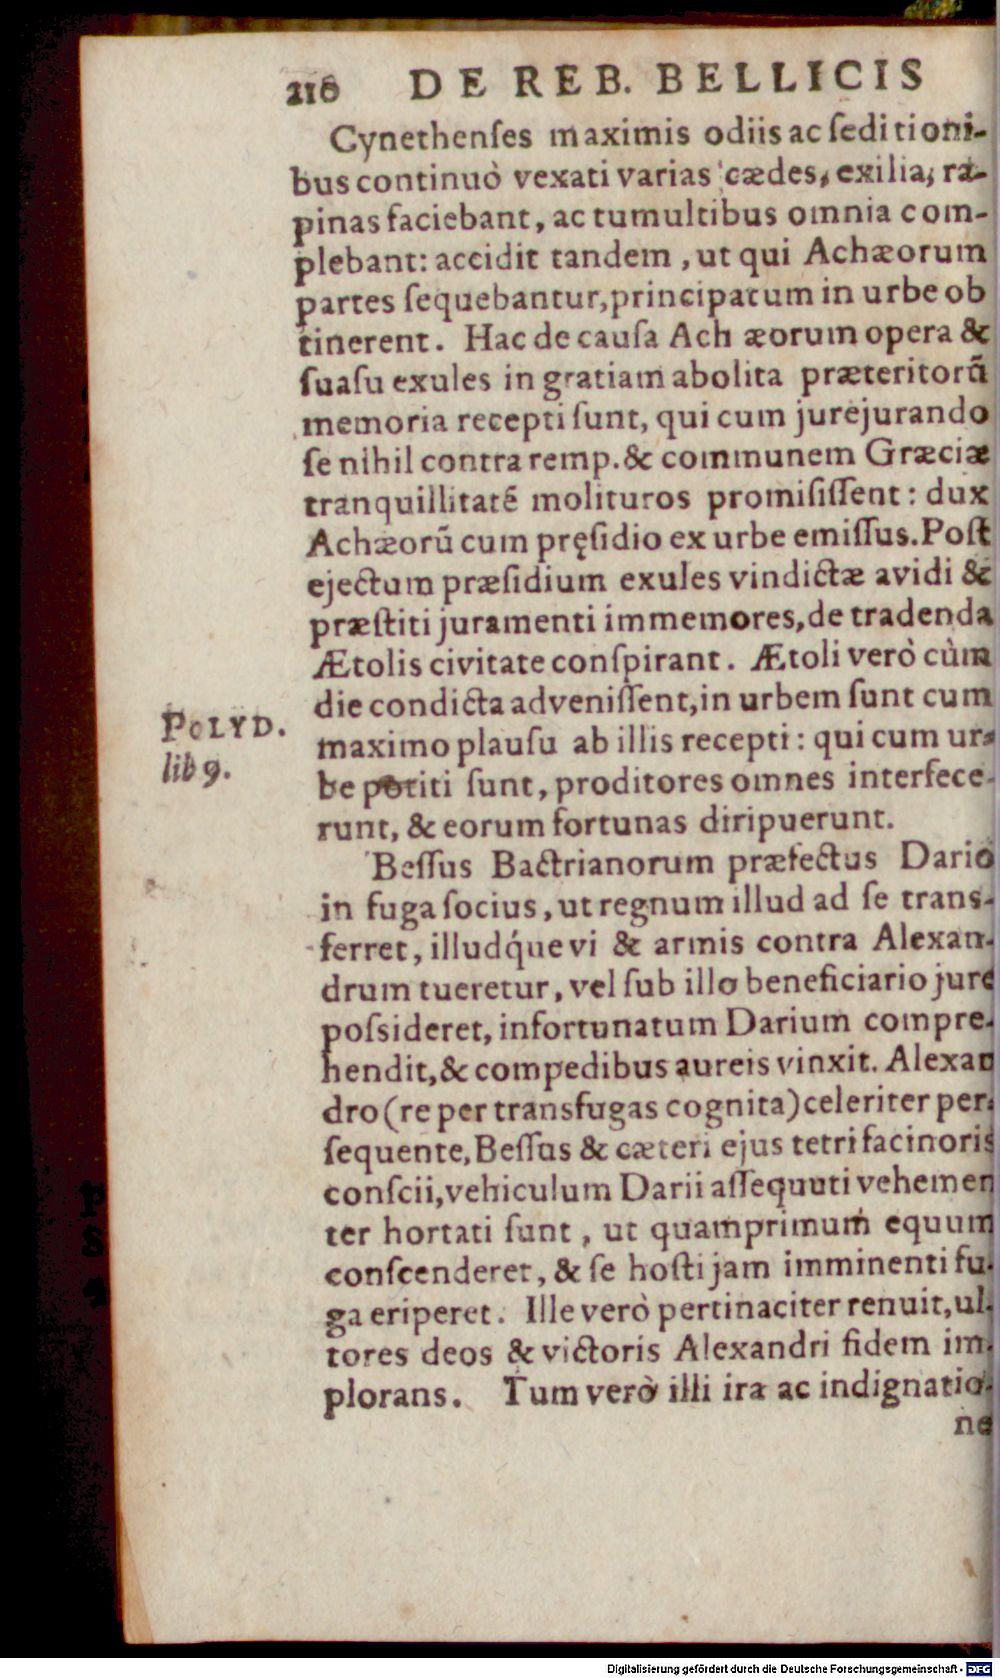 210 DE REB. BELLICIS
Cynethenſes maximis odiis ac ſeditioni-
bus continuò vexati varias cædes, exilia, ra-
pinas faciebant, ac tumultibus omnia com-
plebant: accidit tandem, ut qui Achæorum
partes ſequebantur, principatum in urbe ob
tinerent. Hac de cauſa Ach æorum opera &
ſuaſu exules in gratiam abolita præteritorũ
memoria recepti ſunt, qui cum jurejurando
ſe nihil contra remp. & communem Græciæ
tranquillitaté molituros promiſiſſent: dux
Achæorũ cum pręſidio ex urbe emiſſus. Poſt
ejectum præſidium exules vindictæ avidi &
præſtiti juramenti immemores, de tradenda
Ætolis civitate conſpirant. Ætoli verò cùm
die condicta adveniſſent, in urbem ſunt cum
POLYD.
lib 9.
maximo plauſu ab illis recepti: qui cum ur-
be potiti ſunt, proditores omnes interfece-
runt, & eorum fortunas diripuerunt.
Beſſus Bactrianorum præfectus Dario
in fuga ſocius, ut regnum illud ad ſe trans-
ferret, illudq́ue vi & armis contra Alexan-
drum tueretur, vel ſub illo beneficiario jure
poſsideret, infortunatum Darium compre-
hendit, & compedibus aureis vinxit. Alexan
dro (re per transfugas cognita) celeriter per-
ſequente, Beſſus & cæteri ejus tetri facinoris
conſcii, vehiculum Darii aſſequuti vehemen
ter hortati ſunt, ut quamprimum equum
conſcenderet, & ſe hoſti jam imminenti fu-
ga eriperet. Ille verò pertinaciter renuit, ul-
tores deos & victoris Alexandri fidem im-
plorans. Tum verò illi ira ac indignatio-
ne
Digitalisierung gefördert durch die Deutsche Forschungsgemeinschaft - DFG